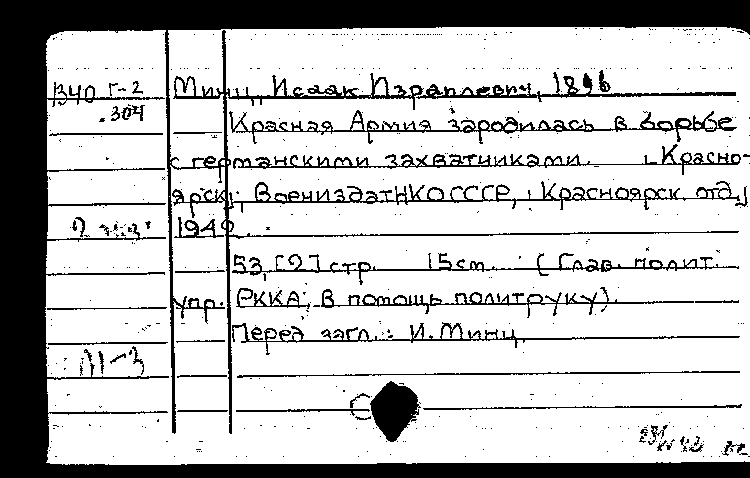 В40 Г-2 Минц, Исаак Израилевич, 1896
.304
Красная Армия зародилась в борьбе
с германскими захватчиками. Красно-
ярск, ВоениздатНКОСССР, Красноярск. отд.,
2 экз. 1942.
53, [2] стр. 15 cm. (Глав. полит.
упр. РККА, В помощь политруку).
Перед загл.: И. Минц.
М-3